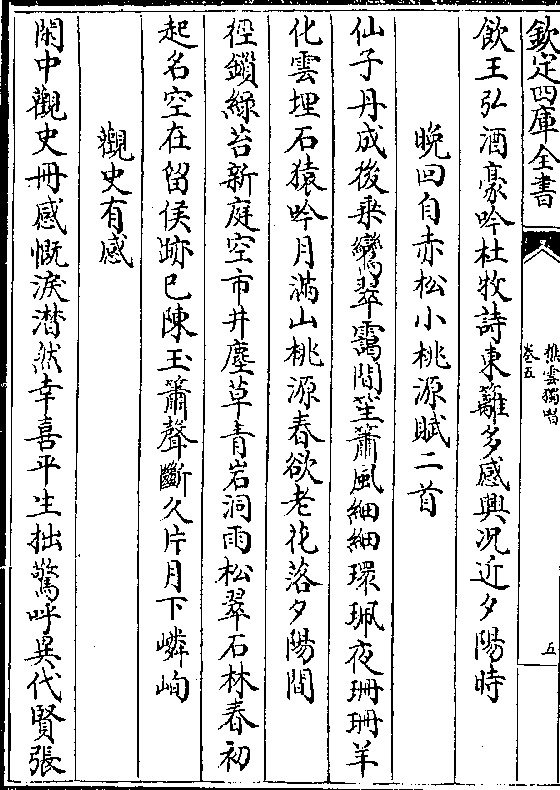 欽定四庫全書
樵雲獨唱
卷五
五
飲王弘酒豪吟杜牧詩東籬多感興况近夕陽時
晚回自赤松小桃源賦二首
仙子丹成後乗鸞翠靄間笙簫風細細環珮夜珊珊羊
化雲埋石猿吟月滿山桃源春欲老花落夕陽間
徑鎖綠苔新庭空市井塵草青岩洞雨松翠石林春初
起名空在留侯跡已陳玉簫聲斷久片月下嶙峋
觀史有感
閑中觀史冊感慨淚潸然幸喜平生拙驚呼異代賢張